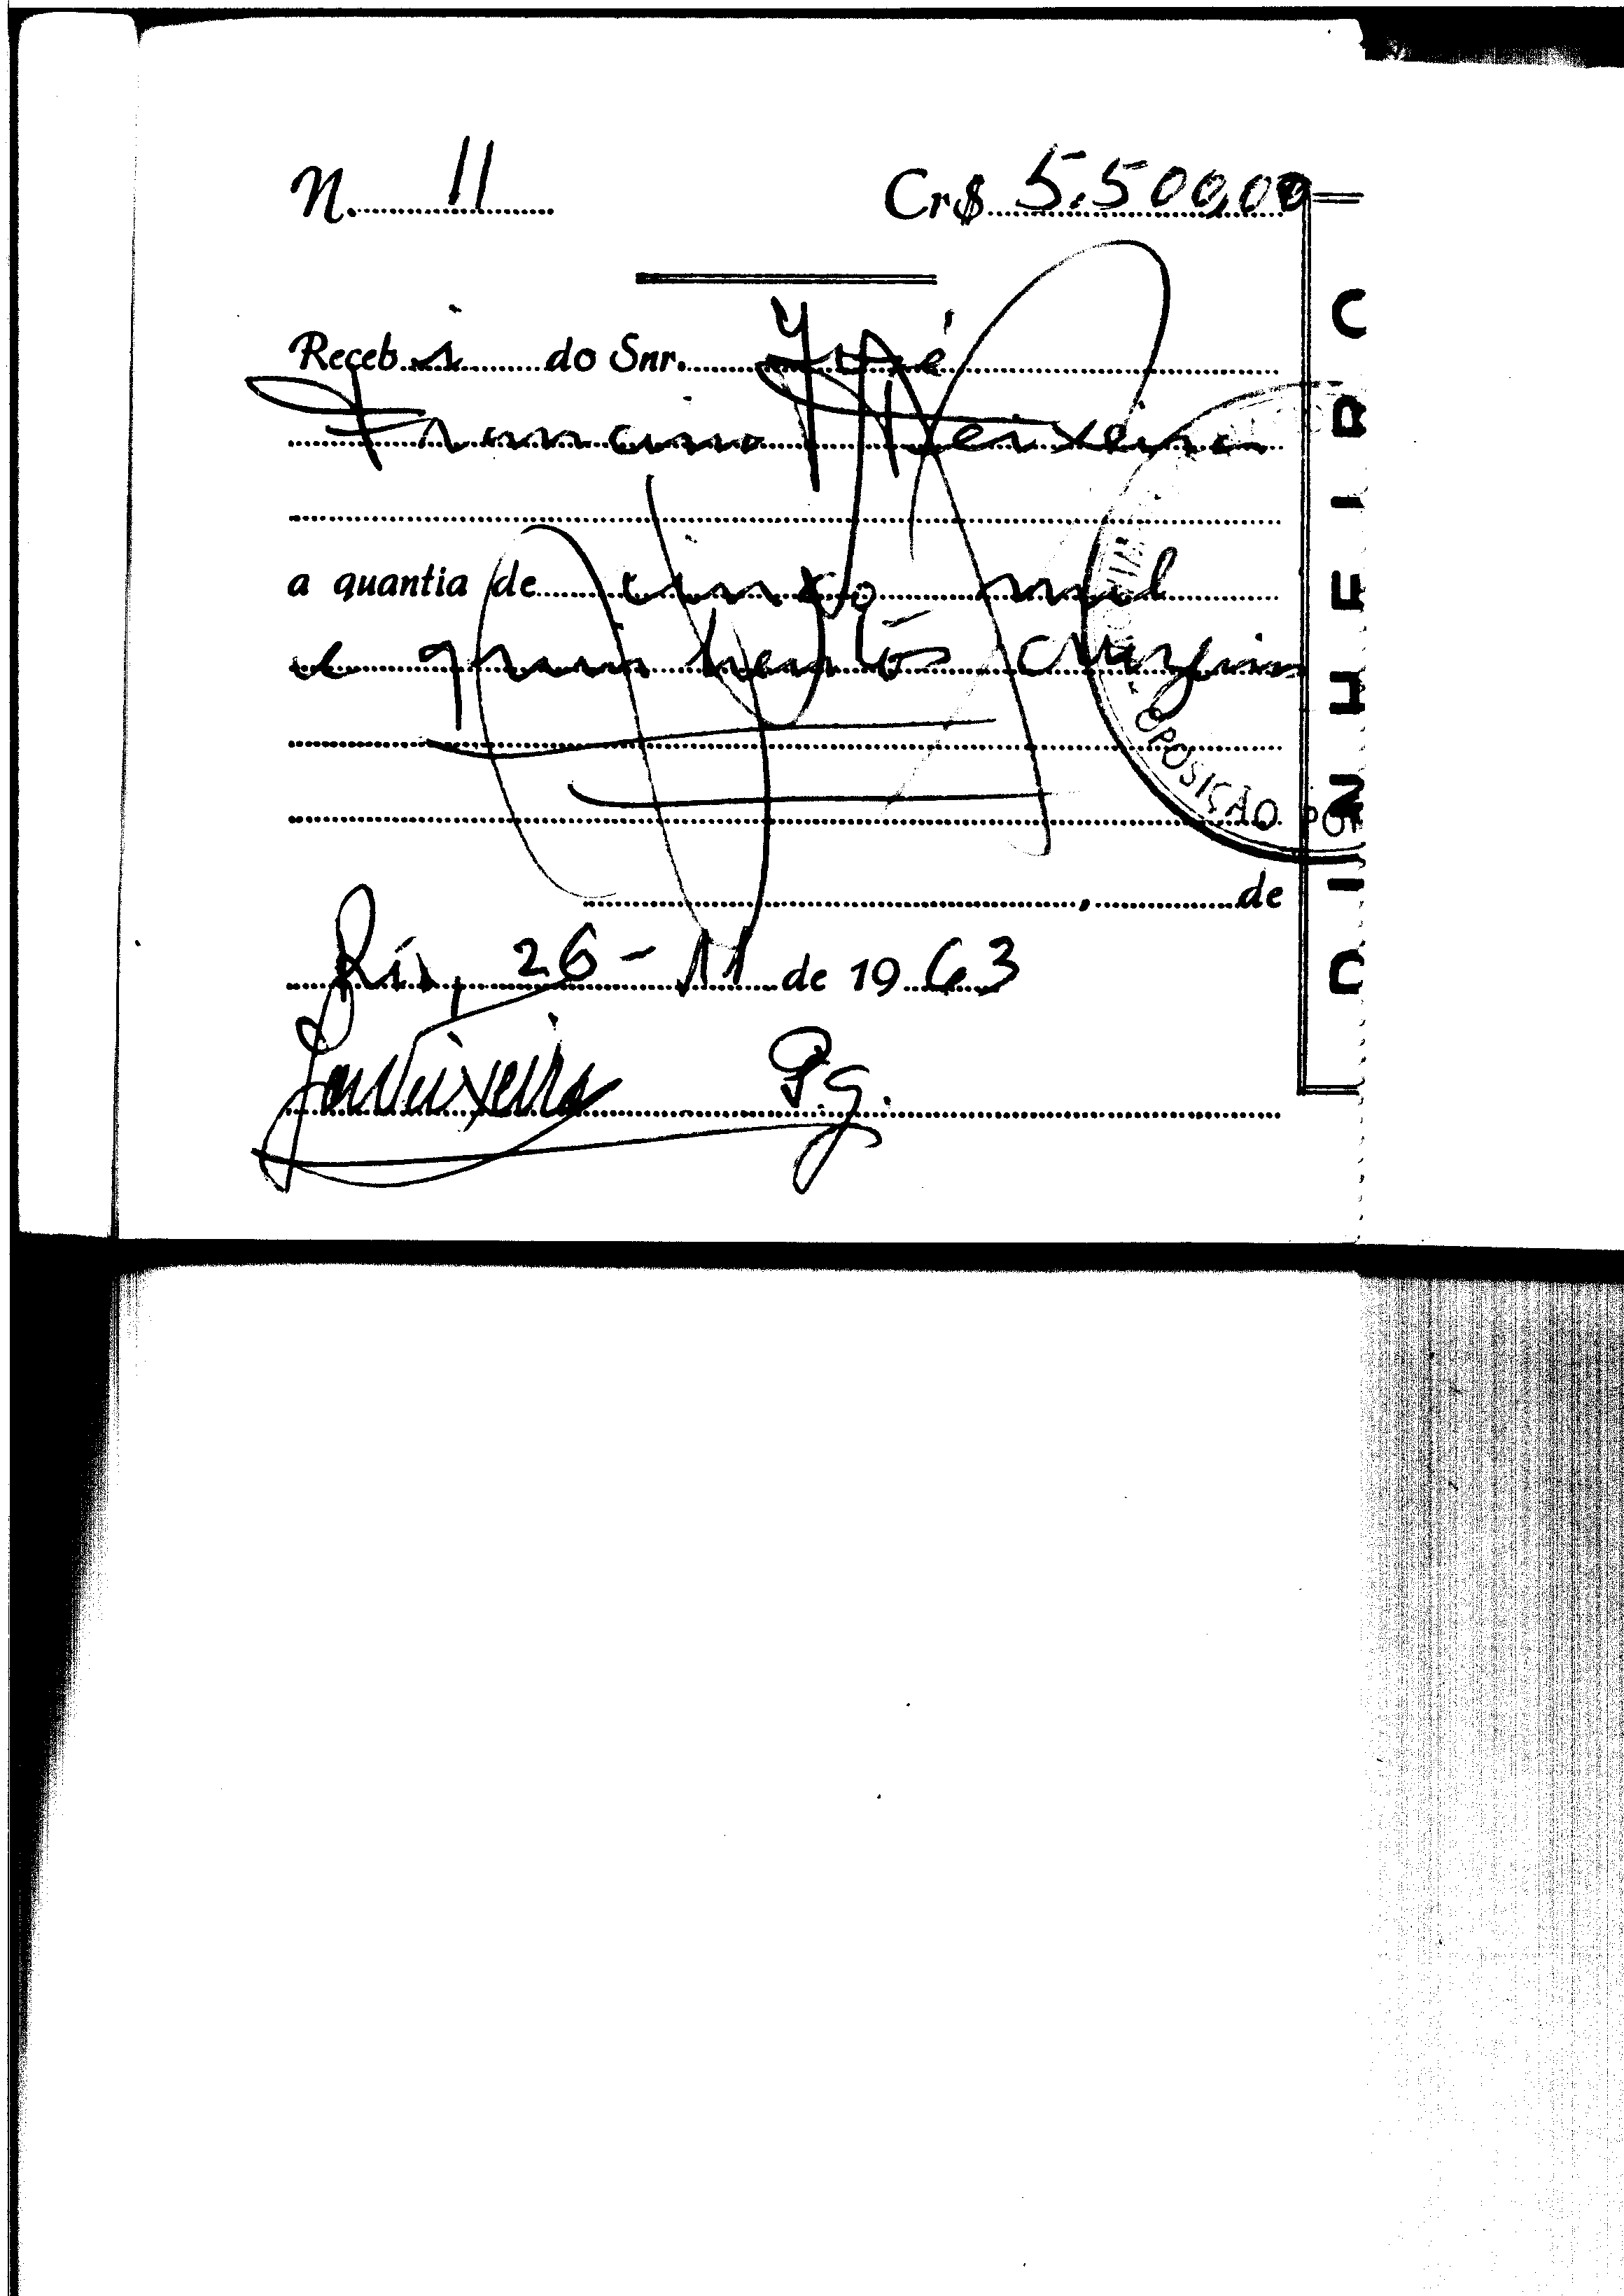 N. 11 Cr$ 5.500,00
Receb i do Snr. José
Francisco Teixeira
a quantia de cinco mil
e quinhentos cruzeiros
de
Rio, 26-11 de 1963
JosTeixeira Pg.
OPOSIÇÃO